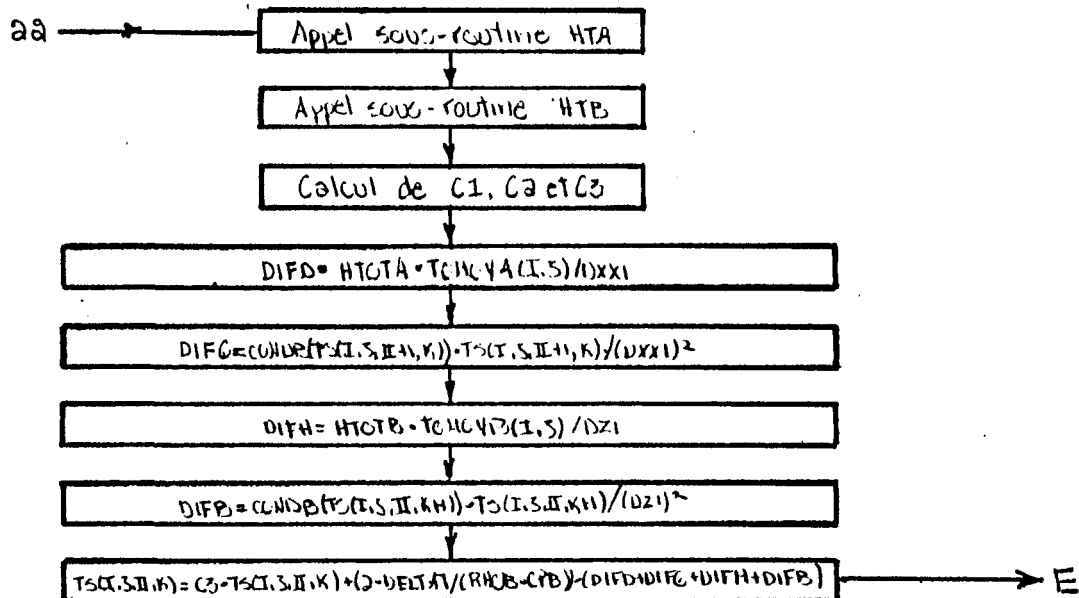 22
Appel sous-routine HTA
Appel sous-routine HTB
Calcul de C1, C2 et C3
DIFD= HTOTA * TCHCYA(I,J)/DXX1
DIFG=CONDB(TS(I,J,II+1,K))*TS(I,J,II+1,K)/(DXX1)²
DIFH= HTOTB * TCHCYB(I,J)/DZ1
DIFB=CONDB(TS(I,J,II,K+1))*TS(I,J,II,K+1)/(DZ1)²
TS(I,J,II,K)=C3*TS(I,J,II,K)+(2*DELTAT/(RHOB*CPB))*(DIFD+DIFG+DIFH+DIFB)
E